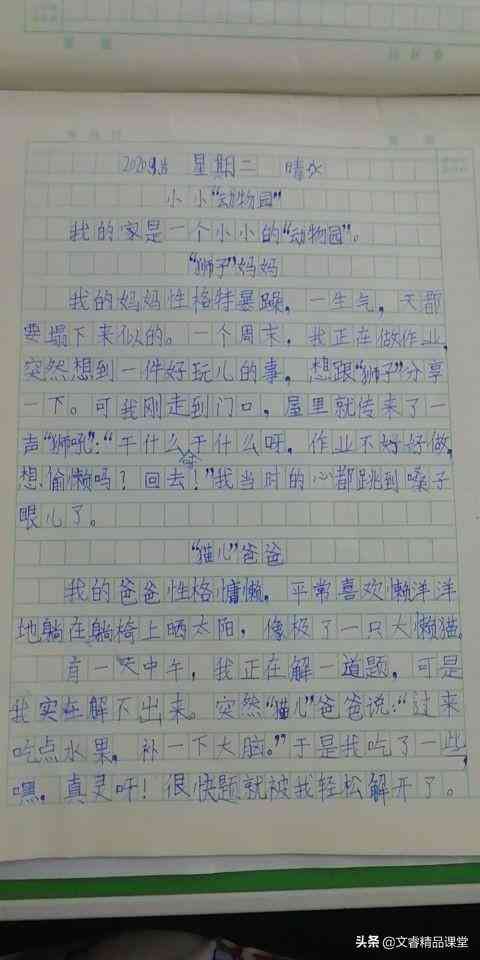 2020.9.  星期二  晴
小小“动物园”
我的家是一个小小的“动物园”。
“狮子”妈妈
我的妈妈性格特暴躁,一生气,天都
要塌下来似的。一个周末,我正在做作业,
突然想到一件好玩儿的事,想跟“狮子”分享
一下。可我刚走到门口,屋里就传来了一
声“狮吼”:“干什么干什么呀,作业不好好做,
想偷懒吗?回去!”我当时的心都跳到嗓子
眼儿了。
“猫儿”爸爸
我的爸爸性格慵懒,平常喜欢懒洋洋
地躺在躺椅上晒太阳,像极了一只大懒猫。
有一天中午,我正在解一道题,可是
我实在解不出来。突然“猫儿”爸爸说:“过来
吃点水果,补一下大脑。”于是我吃了一些,
嘿,真灵吖!很快题就被我轻松解开了。
头条 @文睿精品课堂